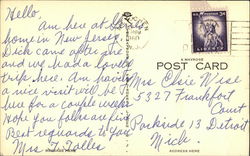 Hello,
Am here at
home in New Jersey.
Dick came after me
and we had a lovely
trip here. Am having
a nice visit will be
here for a couple weeks
Hope you folks are fine
Best regards to you
Mrs F. Zolles
U.S. POSTAGE 3¢
LIBERTY
POST CARD
Mrs Clare Wise
5327 Frankfort
Court
Parkside 13 Detroit
Mich.
ADDRESS HERE